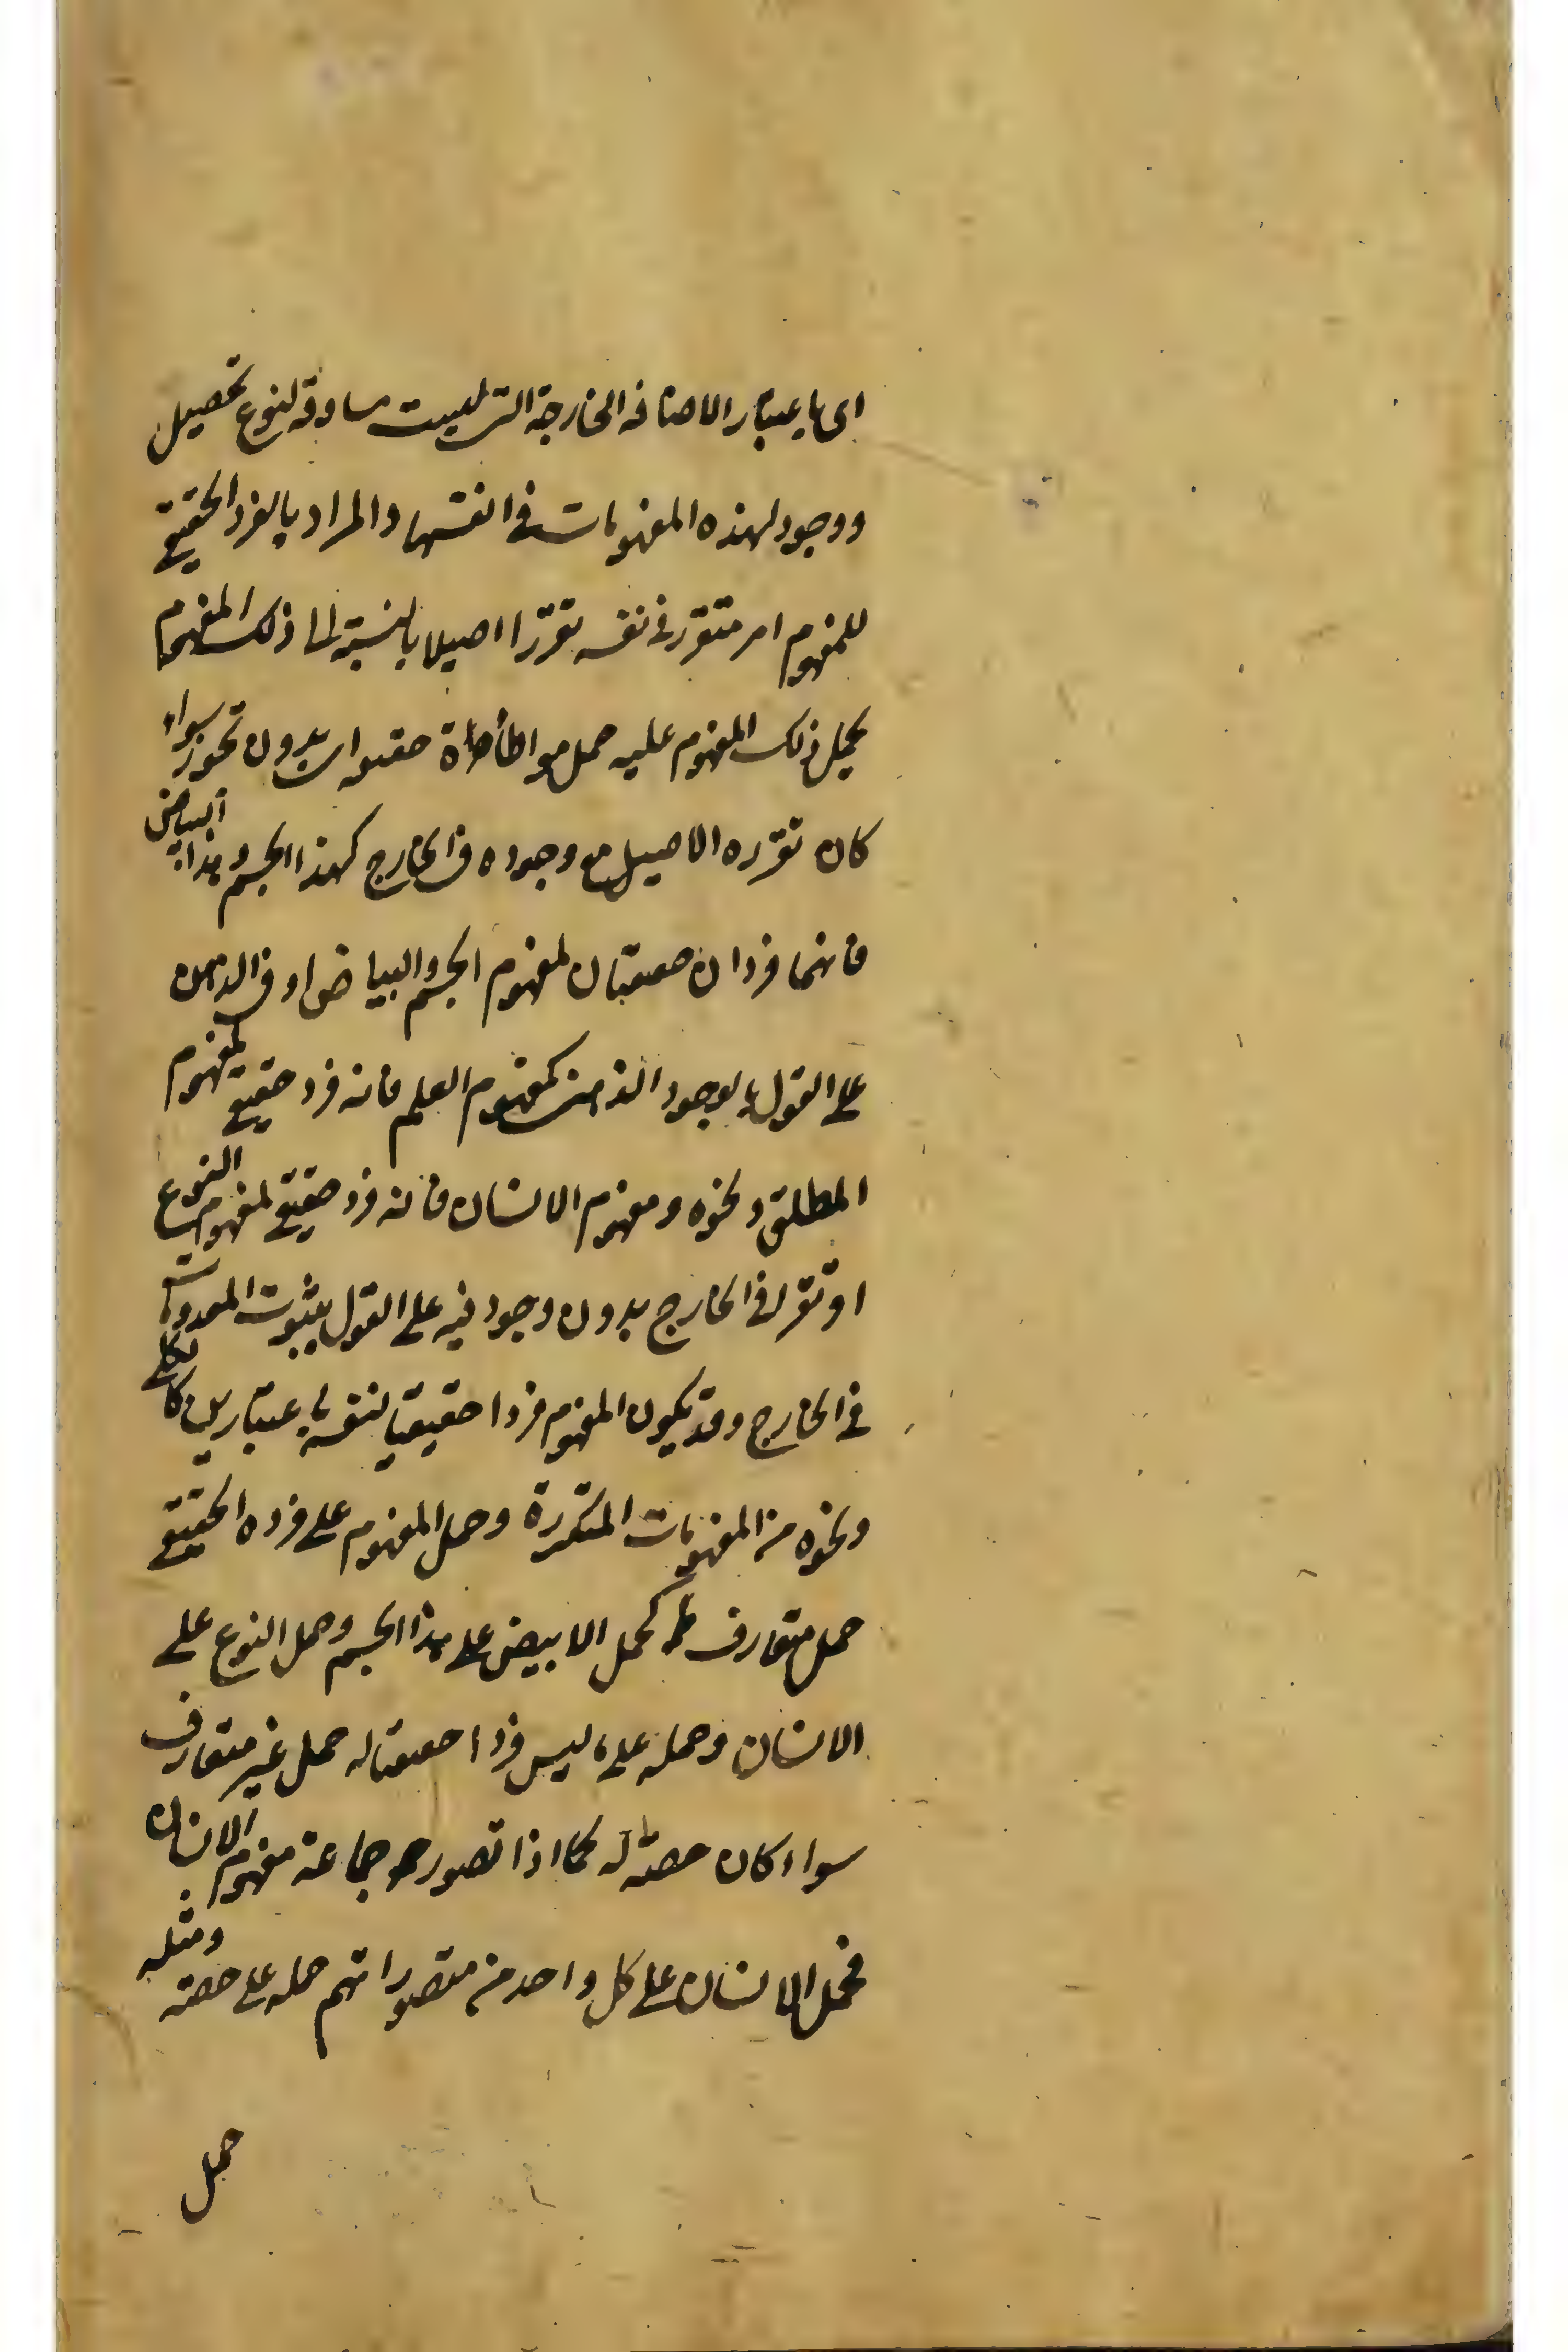 اى باعتبار الاضافة الخارجة التى ليست مساوقة لنوع تحصيل
ووجود لهذه المفهومات فى انفسها والمراد بالفرد الحقيقى
للمفهوم امر متقرر فى نفسه تقررا اصيلا بالنسبة الى ذلك المفهوم
يحمل ذلك المفهوم عليه حمل مواطأة حقيقة اى بدون تجوز سواء
كان تقرره الاصيل مع وجوده فى الخارج كهذا الجسم وهذا البياض
فانهما فردان حقيقيان لمفهوم الجسم والبياض او فى الذهن
على القول بالوجود الذهنى كمفهوم العلم فانه فرد حقيقى لمفهوم
المطلق ونحوه ومفهوم الانسان فانه فرد حقيقى لمفهوم النوع
او تقرر فى الخارج بدون وجود فيه على القول بثبوت المعدومات
فى الخارج وقد يكون المفهوم فردا حقيقيا لنفسه باعتبارين كالكلى
ونحوه من المفهومات المتكررة وحمل المفهوم على فرده الحقيقى
حمل متعارف كحمل الابيض على هذا الجسم وحمل النوع على
الانسان وحمله على ما ليس فردا حقيقيا له حمل غير متعارف
سواء كان حصة له كما اذا تصور جماعة مفهوم الانسان
فحمل الانسان على كل واحد من متصوراتهم حمله على حصته ومثله
حمل